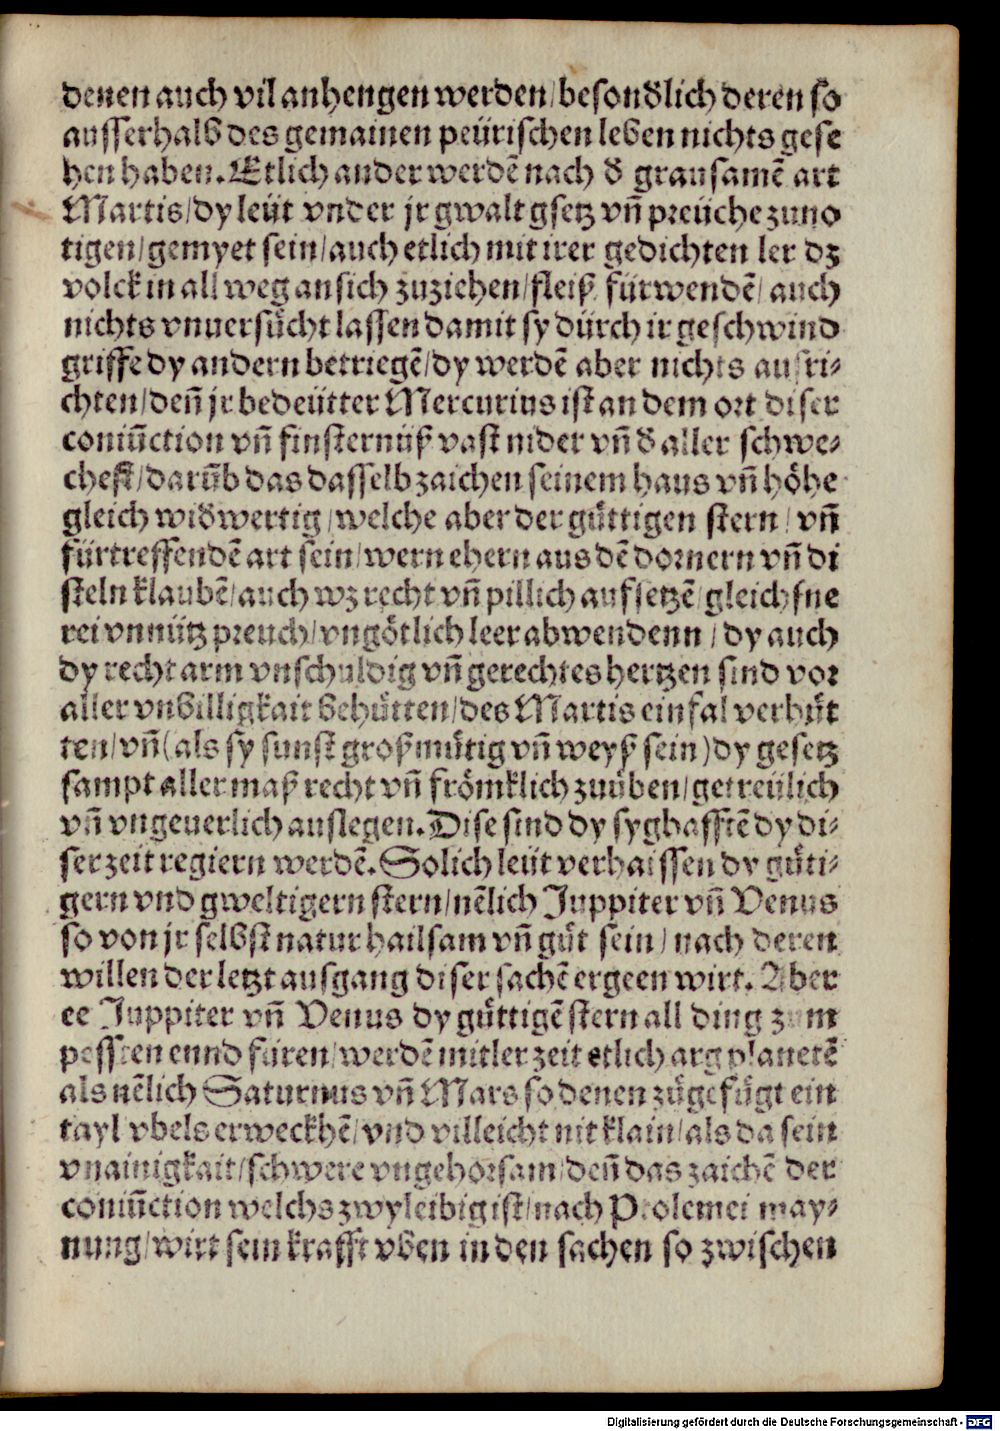 denen auch vil anhengen werden/besonđlich deren so
ausserhalb des gemainen peürischen leben nichts gese
hen haben. Etlich ander werdē nach đ grausamē art
Martis/dy leüt vnder jr gwalt gsetz vn̄ preüche zuno
tigen/gemyet sein/auch etlich mit irer gedichten ler dz
volck in all weg an sich zuziehen/fleiß fürwendē/auch
nichts vnuersücht lassen damit sy dürch ir geschwind
griffe dy andern betriegē/dy werdē aber nichts ausri-
chten/den̄ jr bedeütter Mercurius ist an dem ort diser
coniūction vn̄ finsternüß vast nider vn̄ đ aller schwe-
chest/darūb das dasselb zaichen seinem haus vn̄ höhe
gleich wiđwertig/welche aber der gůttigen stern/vn̄
fürtreffendē art sein/wern ehern aus dē dornern vn̄ di
steln klaubē/auch wz recht vn̄ pillich aufsetzē/gleichsne
rei vnnütz preuch/vngötlich leer abwendenn/dy auch
dy recht arm vnschuldig vn̄ gerechtes hertzen sind vor
aller vnbilligkait behütten/des Martis einfal verhůt
ten/vn̄ (als sy sunst großmůtig vn̄ weyß sein) dy gesetz
sampt aller maß recht vn̄ frömklich zuüben/getreülich
vn̄ vngeuerlich auslegen. Dise sind dy syghafftē dy di-
ser zeit regiern werdē. Solich leüt verhaissen dy gůti-
gern vnd gweltigern stern/nēlich Juppiter vn̄ Venus
so von jr selbst natur hailsam vn̄ gůt sein/nach deren
willen der letzt ausgang diser sachē ergeen wirt. Aber
ee Juppiter vn̄ Venus dy gůttigē stern all ding zum
pessten ennd füren/werdē mitler zeit etlich arg planetē
als nēlich Saturnus vn̄ Mars so denen zůgefůgt ein
tayl vbels erweckhē/vnd villeicht nit klain/als da sein
vnainigkait/schwere vngehorsam/den̄ das zaichē der
coniūction welchs zwyleibig ist/nach Ptolemei may-
nung/wirt sein krafft vben in den sachen so zwischen
Digitalisierung gefördert durch die Deutsche Forschungsgemeinschaft - DFG